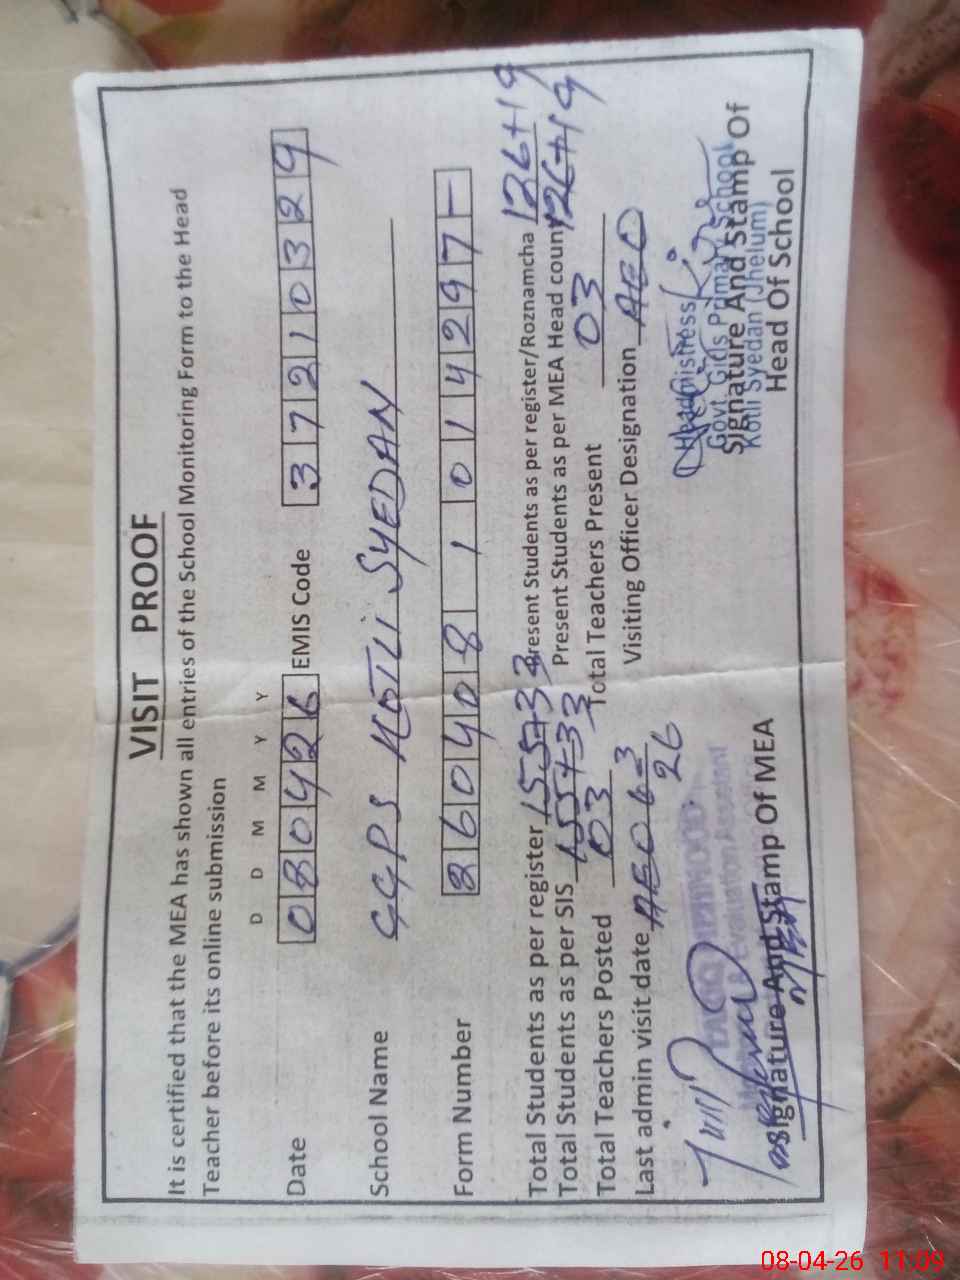 VISIT PROOF
It is certified that the MEA has shown all entries of the School Monitoring Form to the Head
Teacher before its online submission
D D M M Y Y
Date 080426 EMIS Code 37210329
School Name GGPS KOTLI SYEDAN
Form Number 260408 1 0 1 4 2 9 7 -
Total Students as per register 155+33 Present Students as per register/Roznamcha 126+19
Total Students as per SIS 155+33 Present Students as per MEA Head count 126+19
Total Teachers Posted 03 Total Teachers Present 03
Last admin visit date AEO 6-3/26 Visiting Officer Designation AEO
TARIQ MEHMOOD
& Evaluation Assistant
Signature And Stamp Of MEA
MEA
Headmistress
Govt. Girls Primary School
Kotli Syedan (Jhelum)
Signature And Stamp Of
Head Of School
08-04-26 11:09